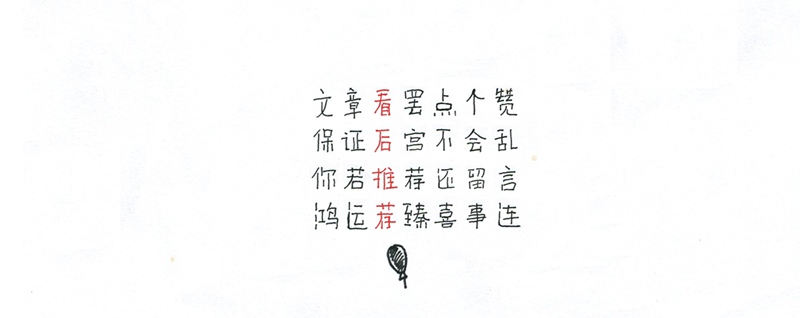 文章看罢点个赞
保证后宫不会乱
你若推荐还留言
鸿运荐臻喜事连